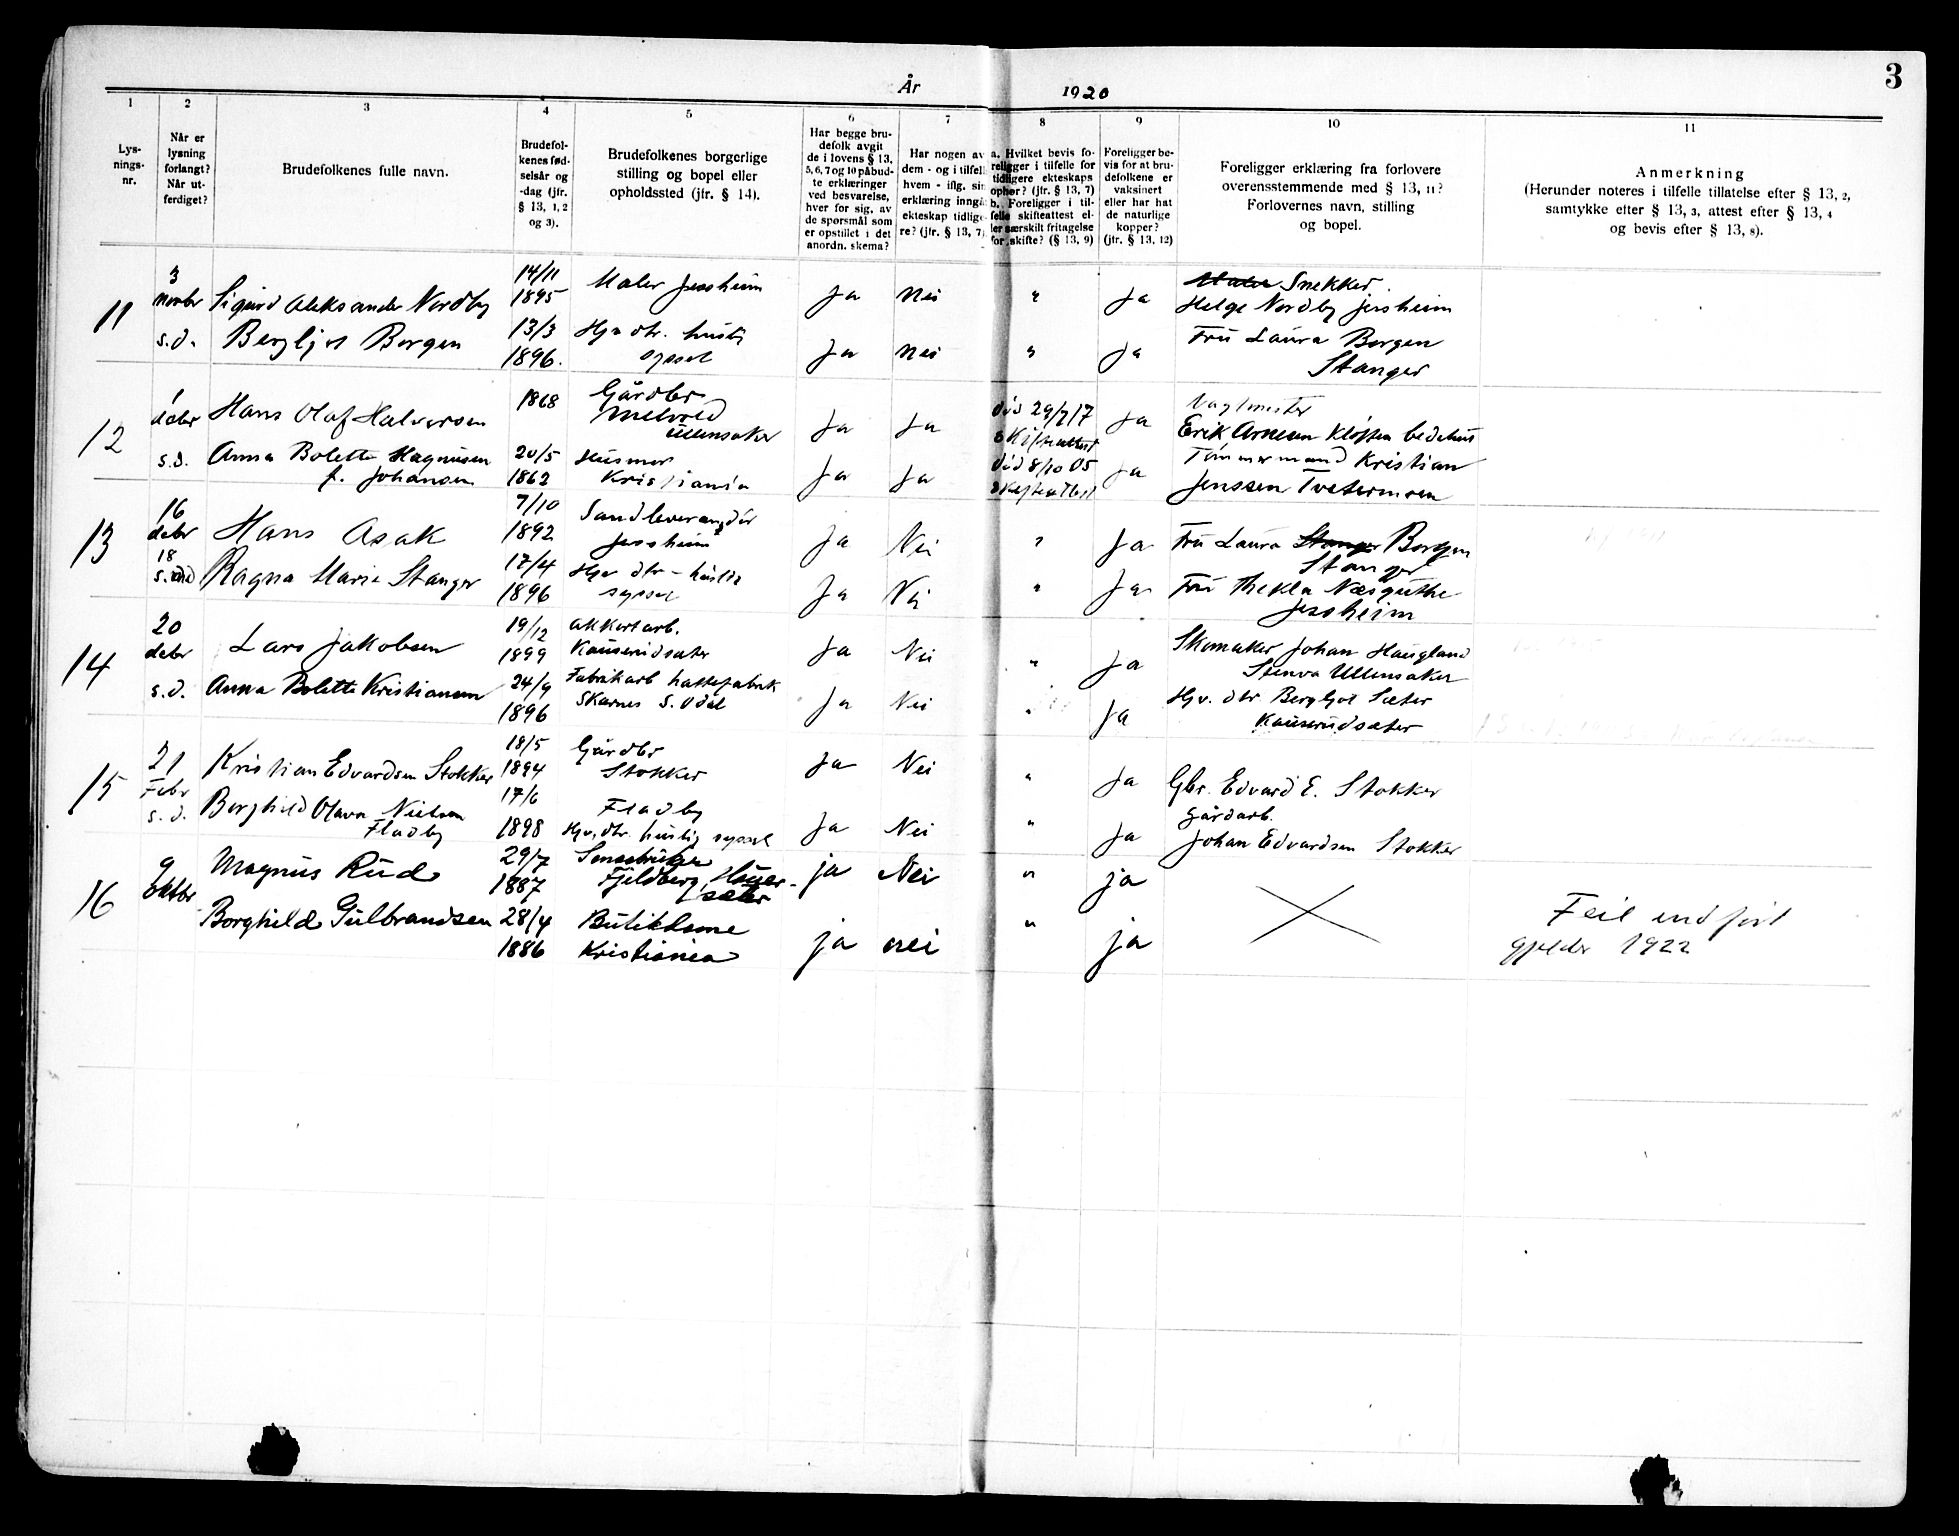 3
År 1920
1 2 3 4 5 6 7 8 9 10 11
Lysnings-nr.
Når er lysning forlangt? Når utferdiget?
Brudefolkenes fulle navn.
Brudefolkenes fødselsår og -dag (jfr. § 13, 1, 2 og 3).
Brudefolkenes borgerlige stilling og bopel eller opholdssted (jfr. § 14).
Har begge brudefolk avgit de i lovens § 13, 5, 6, 7 og 10 påbudte erklæringer ved besvarelse, hver for sig, av de spørsmål som er opstillet i det anordn. skema?
Har nogen av dem - og i tilfelle hvem - iflg. sin erklæring inngått ekteskap tidligere? (jfr. § 13, 7).
a. Hvilket bevis foreligger i tilfelle for tidligere ekteskaps ophør? (jfr. § 13, 7) b. Foreligger i tilfelle skifteattest eller særskilt fritagelse for skifte? (§ 13, 9)
Foreligger bevis for at brudefolkene er vaksinert eller har hat de naturlige kopper? (jfr. § 13, 12)
Foreligger erklæring fra forlovere overensstemmende med § 13, 11? Forlovernes navn, stilling og bopel.
Anmerkning
(Herunder noteres i tilfelle tillatelse efter § 13, 2, samtykke efter § 13, 3, attest efter § 13, 4 og bevis efter § 13, 8).
11
3 novbr Sigurd Aleksander Nordby 14/11 1895 Maler Jessheim Ja Nei " Ja Snekker Helge Nordby Jessheim
s.d. Bergljot Borgen 13/3 1896. Hjv dtr. huslig syssel Ja Nei " Ja Fru Laura Borgen Stanger
12
1 debr Hans Olaf Halvorsen 1868 Gårdbr Ullensaker Ja Ja død 29/7 17 skifteattest Ja Vagtmester Erik Arnesen Kløften bedehus
s.d. Anna Bolette Magnusen f. Johansen 20/5 1862 Husmor Kristiania Ja Ja død 8/10 05 skifteattest Ja Tømmermand Kristian Jenssen Tveitermoen
13
16 debr Hans Asak 7/10 1892 Sandleverandør Jessheim Ja Nei " Ja Fru Laura Stanger Borgen Stanger
18 s. md Ragna Marie Stanger 17/4 1896 Hjv dtr - huslig syssel Ja Nei " Ja Fru Thekla Næsguthe Jessheim
14
20 debr Lars Jakobsen 19/12 1899 Akkortarb. Kauserudsæter Ja Nei " Ja Skomaker Johan Haugland Stenva Ullensaker
s.d. Anna Bolette Kristiansen 24/9 1896 Fabrikarb hattefabrik Skarnes S. Odal Ja Nei " Ja Hjv. dtr Bergljot Sæter Kauserudsæter
15
21 Febr Kristian Edvardsen Stokker 18/5 1894 Gårdbr Stokker Ja Nei " Ja Gbr. Edvard E. Stokker
s.d. Borghild Olava Nielsen Fladby 17/6 1898 Fladby Hjv. dtr. huslig syssel Ja Nei " Ja gårdarb. Johan Edvardsen Stokker
16
9 Oktbr Magnus Rud 29/7 1887 Fjeldberg, sæter ja Nei " ja
Borghild Gulbrandsen 28/4 1886 Butikdame Kristiania ja nei " ja
Feil indført
gjelder 1922